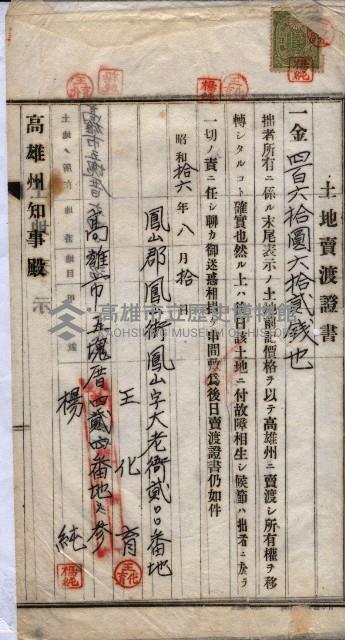 土地賣渡證書
一金四百六拾圓六拾貳錢也
拙者所有ニ係ル末尾表示ノ土地前記價格ヲ以テ高雄州ニ賣渡シ所有權ヲ移
轉シタルコト確實也然ル上ハ後日該土地ニ付故障相生シ候節ハ拙者ニ於テ
一切ノ責ニ任シ聊カ御送惑相掛ケ申間敷為後日賣渡證書仍如件
昭和拾六年八月拾日
鳳山郡鳳山街鳳山字大老衙貳〇〇番地
王化育
高雄市五塊厝四貳四番地ノ參
楊純
高雄州知事殿
土地ノ所在
高雄市五塊厝
高雄市立歷史博物館
KAOHSIUNG MUSEUM OF HISTORY
楊純
王化育